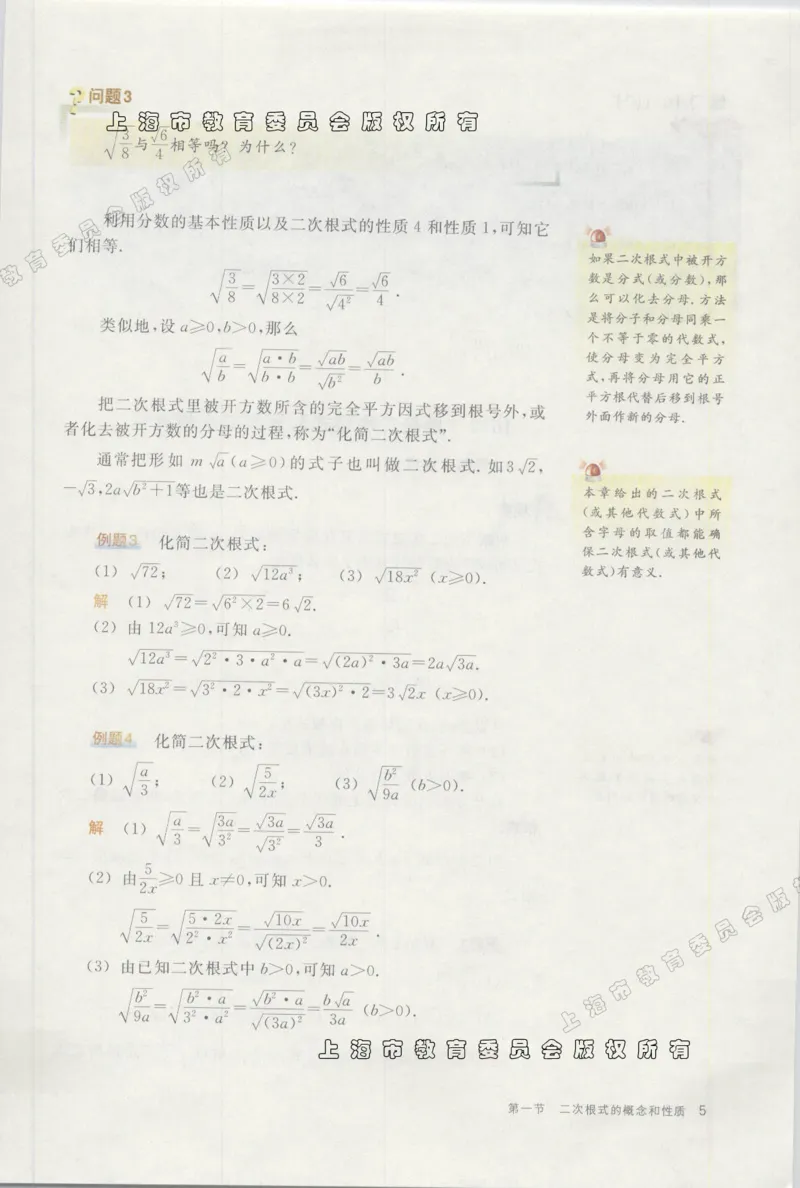 问题3
上海市教育委员会版权所有
√(3/8)与√6/4相等吗? 为什么?
上海市教育委员会版权所有
利用分数的基本性质以及二次根式的性质 4 和性质 1,可知它
们相等.
√(3/8)=√((3×2)/(8×2))=√6/√(4²)=√6/4.
类似地,设 a≥0,b>0,那么
√(a/b)=√((a·b)/(b·b))=√(ab)/√(b²)=√(ab)/b.
把二次根式里被开方数所含的完全平方因式移到根号外,或
者化去被开方数的分母的过程,称为“化简二次根式”.
通常把形如 m√a(a≥0)的式子也叫做二次根式. 如3√2,
-√3,2a√(b²+1)等也是二次根式.
如果二次根式中被开方
数是分式(或分数),那
么可以化去分母. 方法
是将分子和分母同乘一
个不等于零的代数式,
使分母变为完全平方
式,再将分母用它的正
平方根代替后移到根号
外面作新的分母.
本章给出的二次根式
(或其他代数式)中所
含字母的取值都能确
保二次根式(或其他代
数式)有意义.
例题3 化简二次根式:
(1) √72; (2) √(12a³); (3) √(18x²) (x≥0).
解 (1) √72=√(6²×2)=6√2.
(2) 由 12a³≥0,可知 a≥0.
√(12a³)=√(2²·3·a²·a)=√((2a)²·3a)=2a√(3a).
(3) √(18x²)=√(3²·2·x²)=√((3x)²·2)=3√2x (x≥0).
例题4 化简二次根式:
(1) √(a/3); (2) √(5/(2x)); (3) √(b²/(9a)) (b>0).
解 (1) √(a/3)=√(3a/3²)=√(3a)/√(3²)=√(3a)/3.
(2) 由5/(2x)≥0 且 x≠0,可知 x>0.
√(5/(2x))=√((5·2x)/(2²·x²))=√(10x)/√((2x)²)=√(10x)/(2x).
(3) 由已知二次根式中 b>0,可知 a>0.
√(b²/(9a))=√((b²·a)/(3²·a²))=√(b²·a)/√((3a)²)=b√a/(3a) (b>0).
上海市教育委员会版
上海市教育委员会版权所有
第一节 二次根式的概念和性质 5